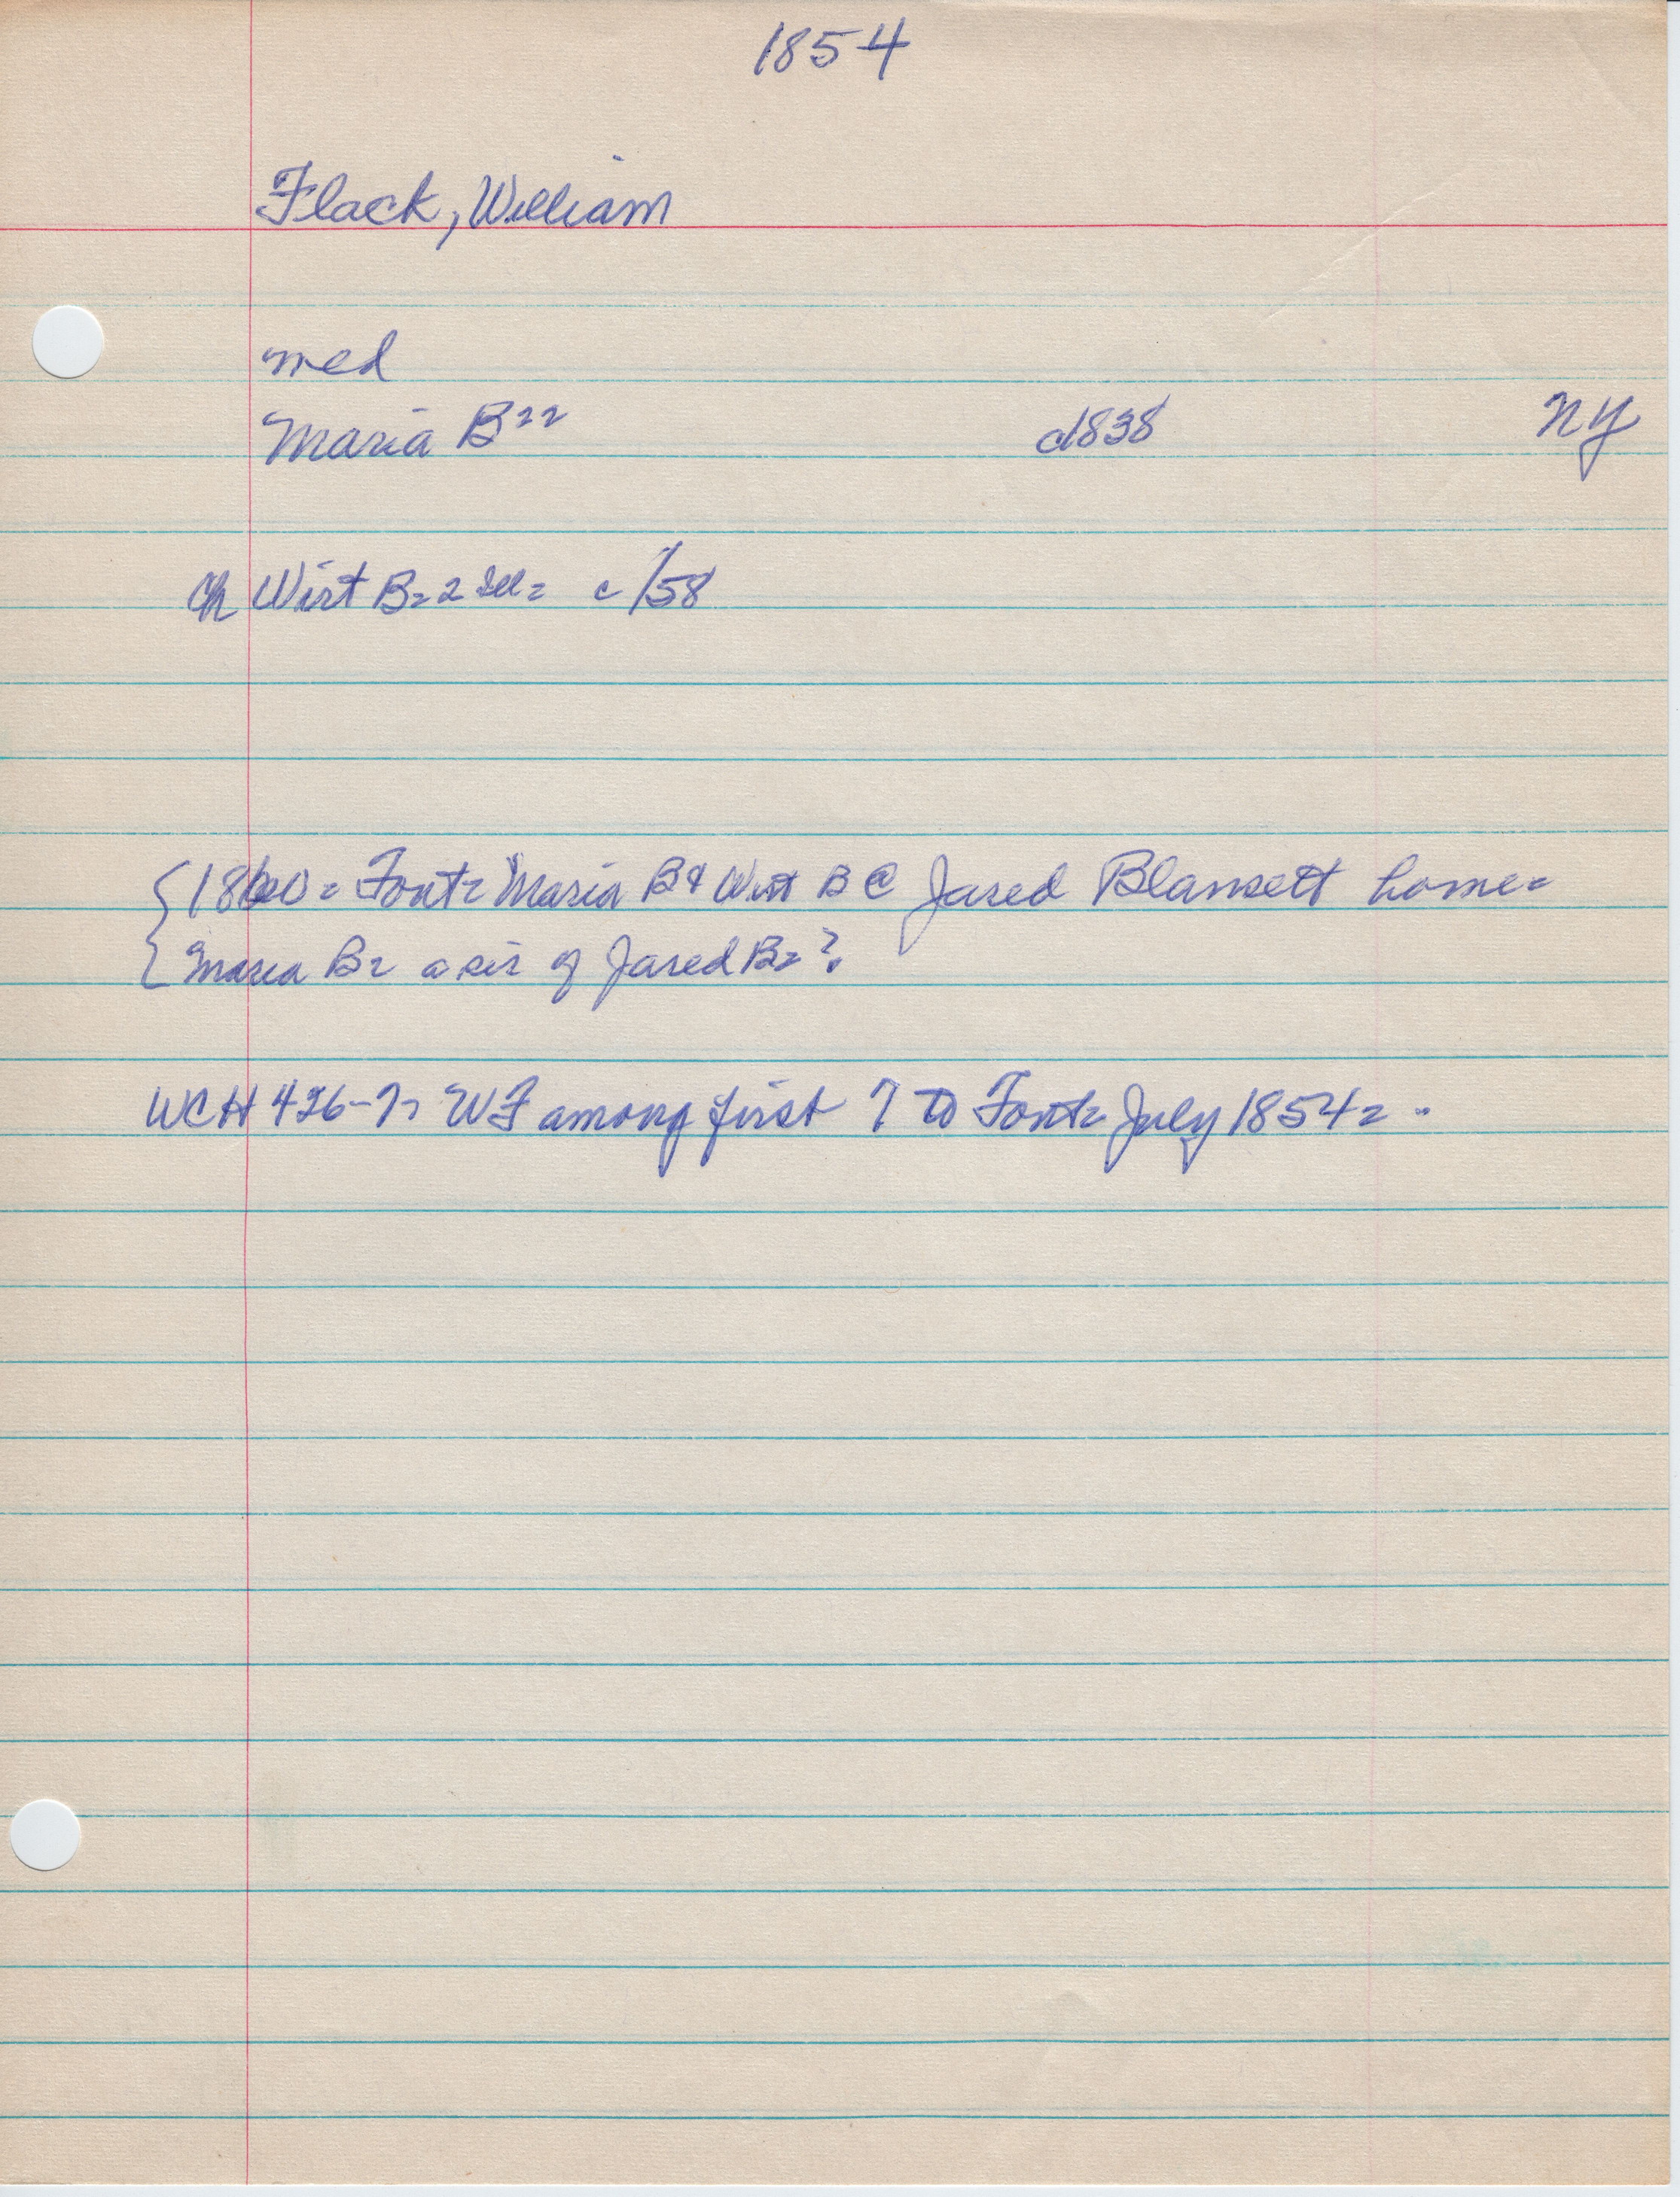 1854
Flack, William
med
Maria B== c1838 NY
Ch Wirt B== Ill= c/58
1860= Font= Maria B & Wirt B @ Jared Blansett home=
Maria B= a sis of Jared B=?
WCH 426-7= WF among first 7 to Font= July 1854=